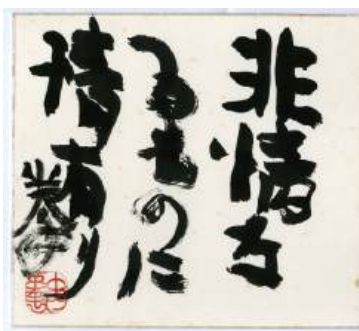 非情な
るものに
情有り